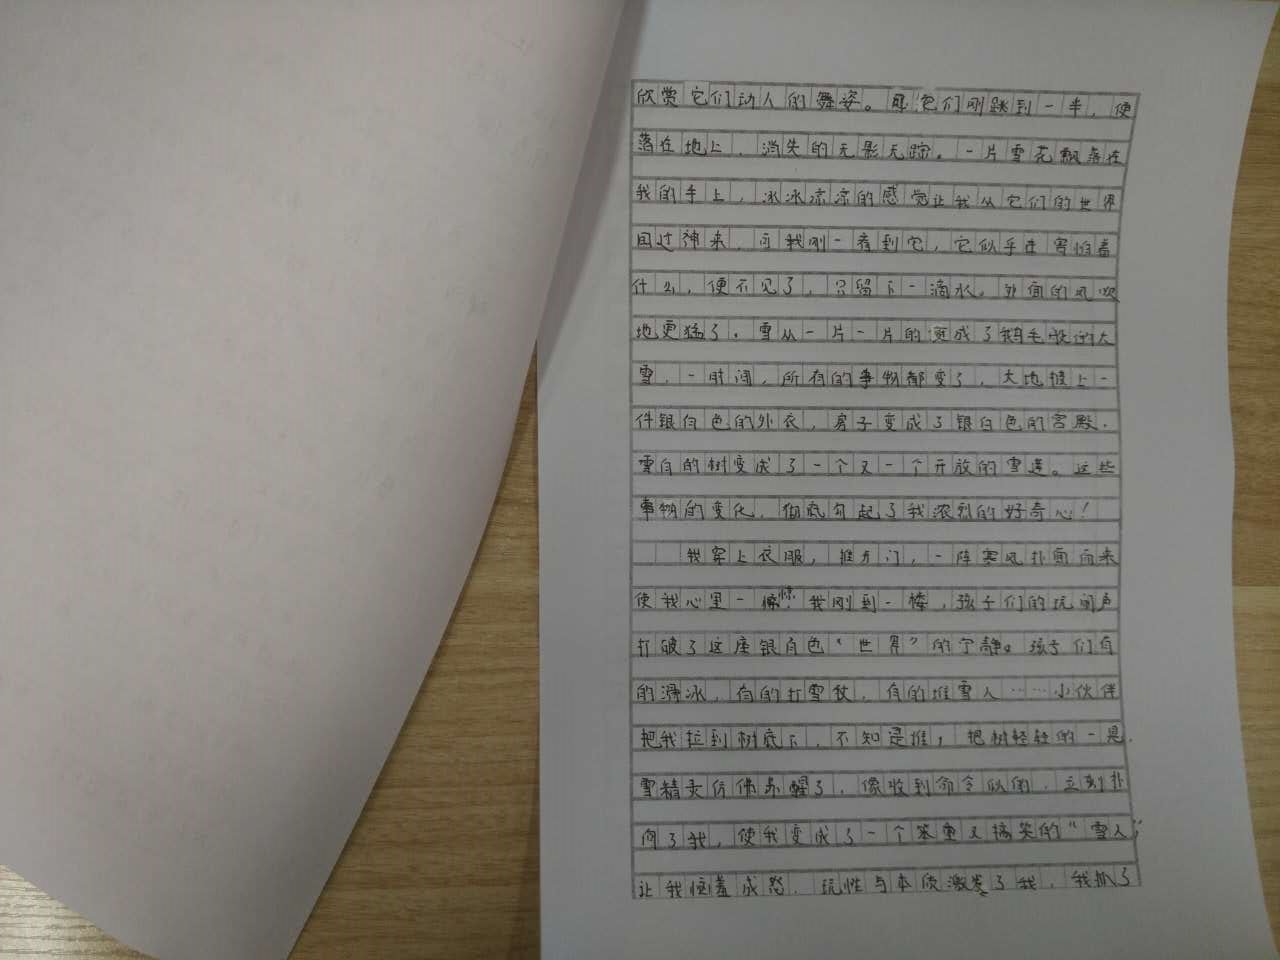 欣赏它们动人的舞姿。可它们刚跳到一半，便
落在地上，消失的无影无踪。一片雪花飘落在
我的手上，冰冰凉凉的感觉让我从它们的世界
回过神来，可我刚一看到它，它似乎在害怕着
什么，便不见了，只留下一滴水。外面的风吹
地更猛了。雪从一片一片的变成了鹅毛般的大
雪，一时间，所有的事物都变了，大地披上一
件银白色的外衣，房子变成了银白色的宫殿，
雪白的树变成了一个又一个开放的雪莲。这些
事物的变化，彻底勾起了我浓烈的好奇心！
我穿上衣服，推开门，一阵寒风扑面而来
使我心里一惊！我刚到一楼，孩子们的玩闹声
打破了这座银白色“世界”的宁静。孩子们有
的滑冰，有的打雪仗，有的堆雪人……小伙伴
把我拉到树底下，不知是谁，把树轻轻的一晃，
雪精灵仿佛睡醒了，像收到命令似的，立刻扑
向了我，使我变成了一个笨重又搞笑的“雪人”，
让我恼羞成怒，玩性与本质激发了我，我抓了